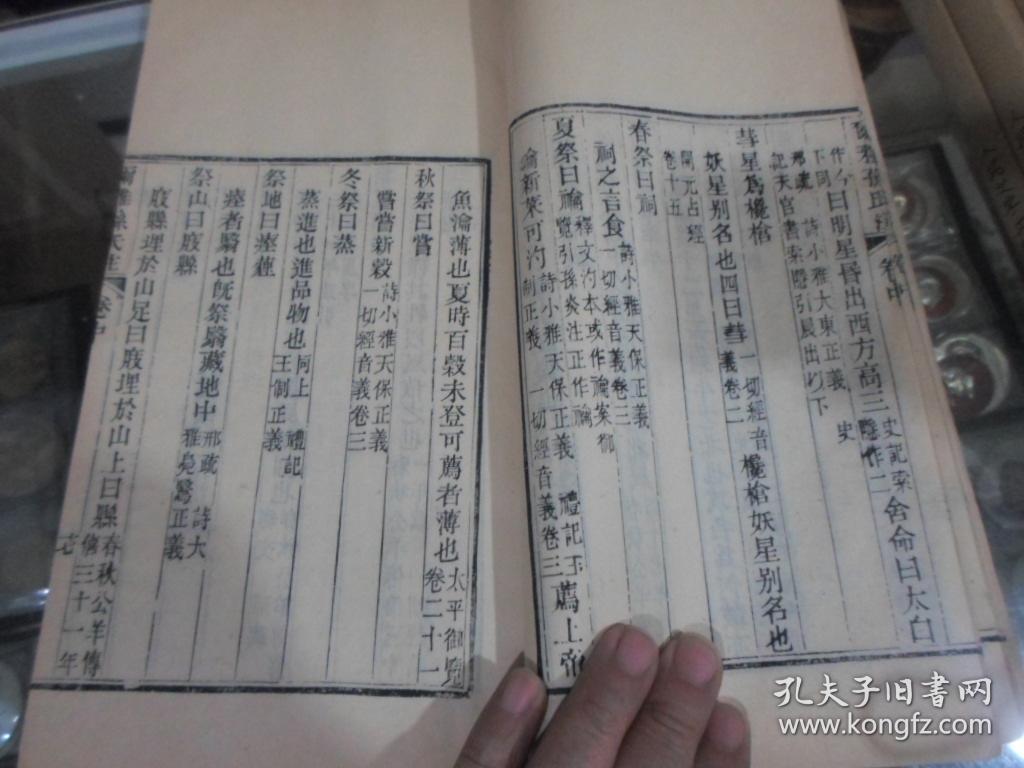 卷中
作今曰明星昏出西方高三史記索隱作二舍命曰太白
下同詩小雅大東正義史
邢疏
記天官書索隱引晨出以下
彗星爲欃槍
妖星别名也四曰彗一切經音義卷二欃槍妖星别名也
開元占經
卷十五
春祭曰祠
祠之言食詩小雅天保正義一切經音義卷三
夏祭曰禴釋文汋本或作禴案御覽引孫炎注正作禴
新菜可汋詩小雅天保正義禮記王制正義一切經音義卷三薦上帝
魚瀹薄也夏時百穀未登可薦者薄也太平御覽卷二十一
秋祭曰嘗
嘗嘗新穀詩小雅天保正義一切經音義卷三
冬祭曰蒸
蒸進也進品物也同上禮記王制正義
祭地曰瘞薶
瘞者翳也旣祭翳藏地中邢疏詩大雅鳧鷖正義
祭山曰庪縣
庪縣埋於山足曰庪埋於山上曰縣春秋公羊傳僖三十一年
卷中
孔夫子旧书网
www.kongfz.com